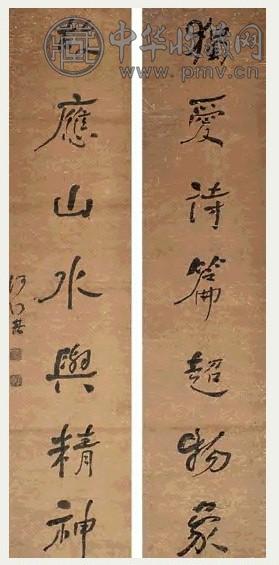 中华收藏网
www.pmv.cn
獨愛詩篇超物象
應山水與精神
何紹基